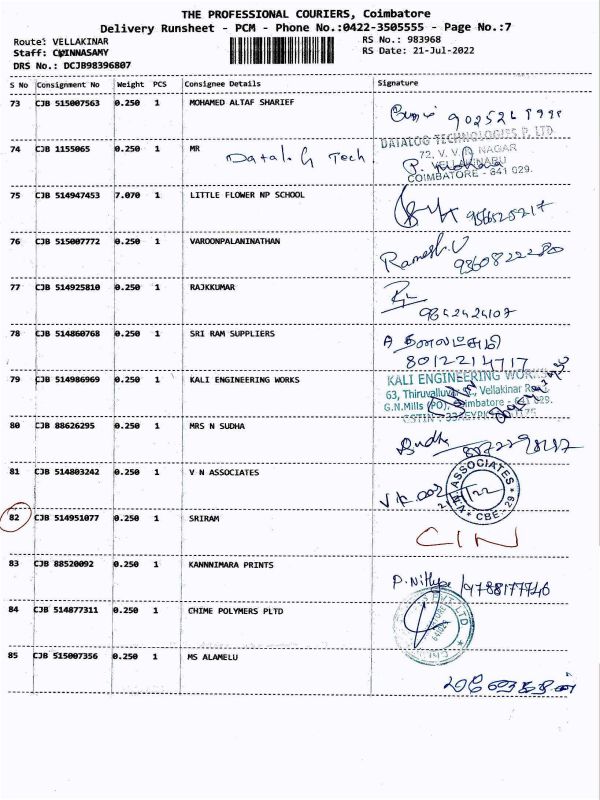 THE PROFESSIONAL COURIERS, Coimbatore
Delivery Runsheet - PCM - Phone No.:0422-3505555 - Page No.:7
Route: VELLAKINAR
RS No.: 983968
Staff: CHINNASAMY
RS Date: 21-Jul-2022
DRS No.: DCJB98396807
S No Consignment No Weight PCS Consignee Details Signature
73 CJB 515007563 0.250 1 MOHAMED ALTAF SHARIEF
74 CJB 1155065 0.250 1 MR Datalog Tech.
DATALOG TECHNOLOGIES P. LTD
72, V. V. NAGAR
VELLAKINARU
COIMBATORE - 641 029.
75 CJB 514947453 7.070 1 LITTLE FLOWER NP SCHOOL
76 CJB 515007772 0.250 1 VAROONPALANINATHAN
Ramesh.V 9360822280
77 CJB 514925810 0.250 1 RAJKKUMAR
9842424107
78 CJB 514860768 0.250 1 SRI RAM SUPPLIERS
8012214717
79 CJB 514986969 0.250 1 KALI ENGINEERING WORKS
KALI ENGINEERING WORKS
63, Thiruvalluvar Vellakinar
G.N.Mills (PO), Coimbatore - 641 029.
80 CJB 88626295 0.250 1 MRS N SUDHA
Sudha
81 CJB 514803242 0.250 1 V N ASSOCIATES
V.N. ASSOCIATES CBE - 29
82 CJB 514951077 0.250 1 SRIRAM CIN
83 CJB 88520092 0.250 1 KANNNIMARA PRINTS
P.Nithya /9788177746
84 CJB 514877311 0.250 1 CHIME POLYMERS PLTD
85 CJB 515007356 0.250 1 MS ALAMELU